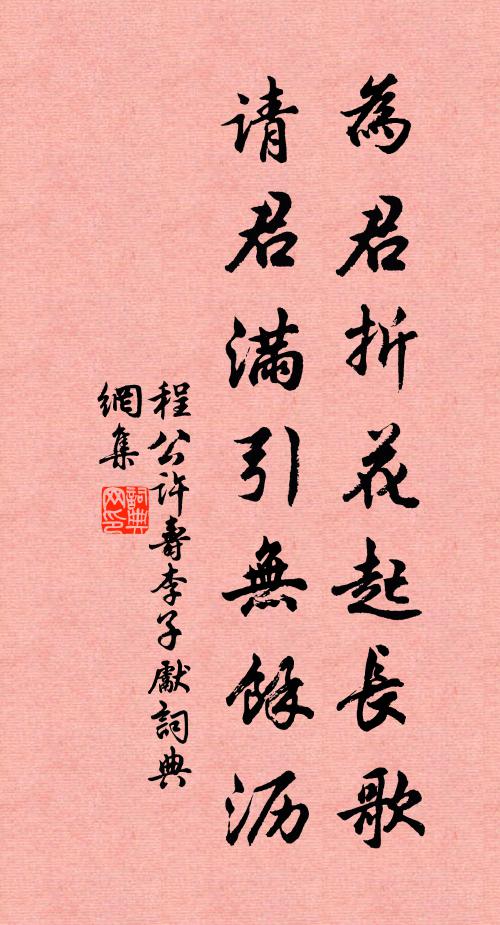 為君折花起長歌
请君滿引無餘沥
程公許壽李子獻詞典
網集
詞典网印